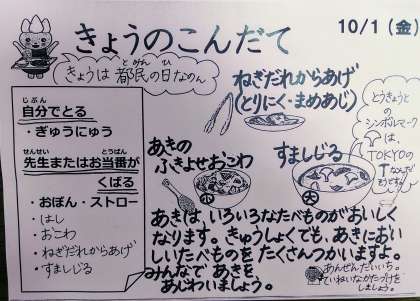 きょうのこんだて
10/1(金)
きょうは都民の日なのん
とみん ひ
ねぎだれからあげ
(とりにく・まめあじ)
とうきょうと
シンボルマーク
は、
TOKYOの
Tなんだ
じぶん
自分でとる
・ぎゅうにゅう
せんせい とうばん
先生またはお当番が
くばる
・おぼん・ストロー
・はし
・おこわ
・ねぎだれからあげ
・すましじる
あきの
ふきよせおこわ
小
すましじる
大
あきは、いろいろなたべものがおいしく
なります。きゅうしょくでも、あきにおい
しいたべものを たくさんつかいますよ。
みんなで あきを
あじわいましょう。
あんぜんだいいち。
ていねいなかたづけを
しましょう。